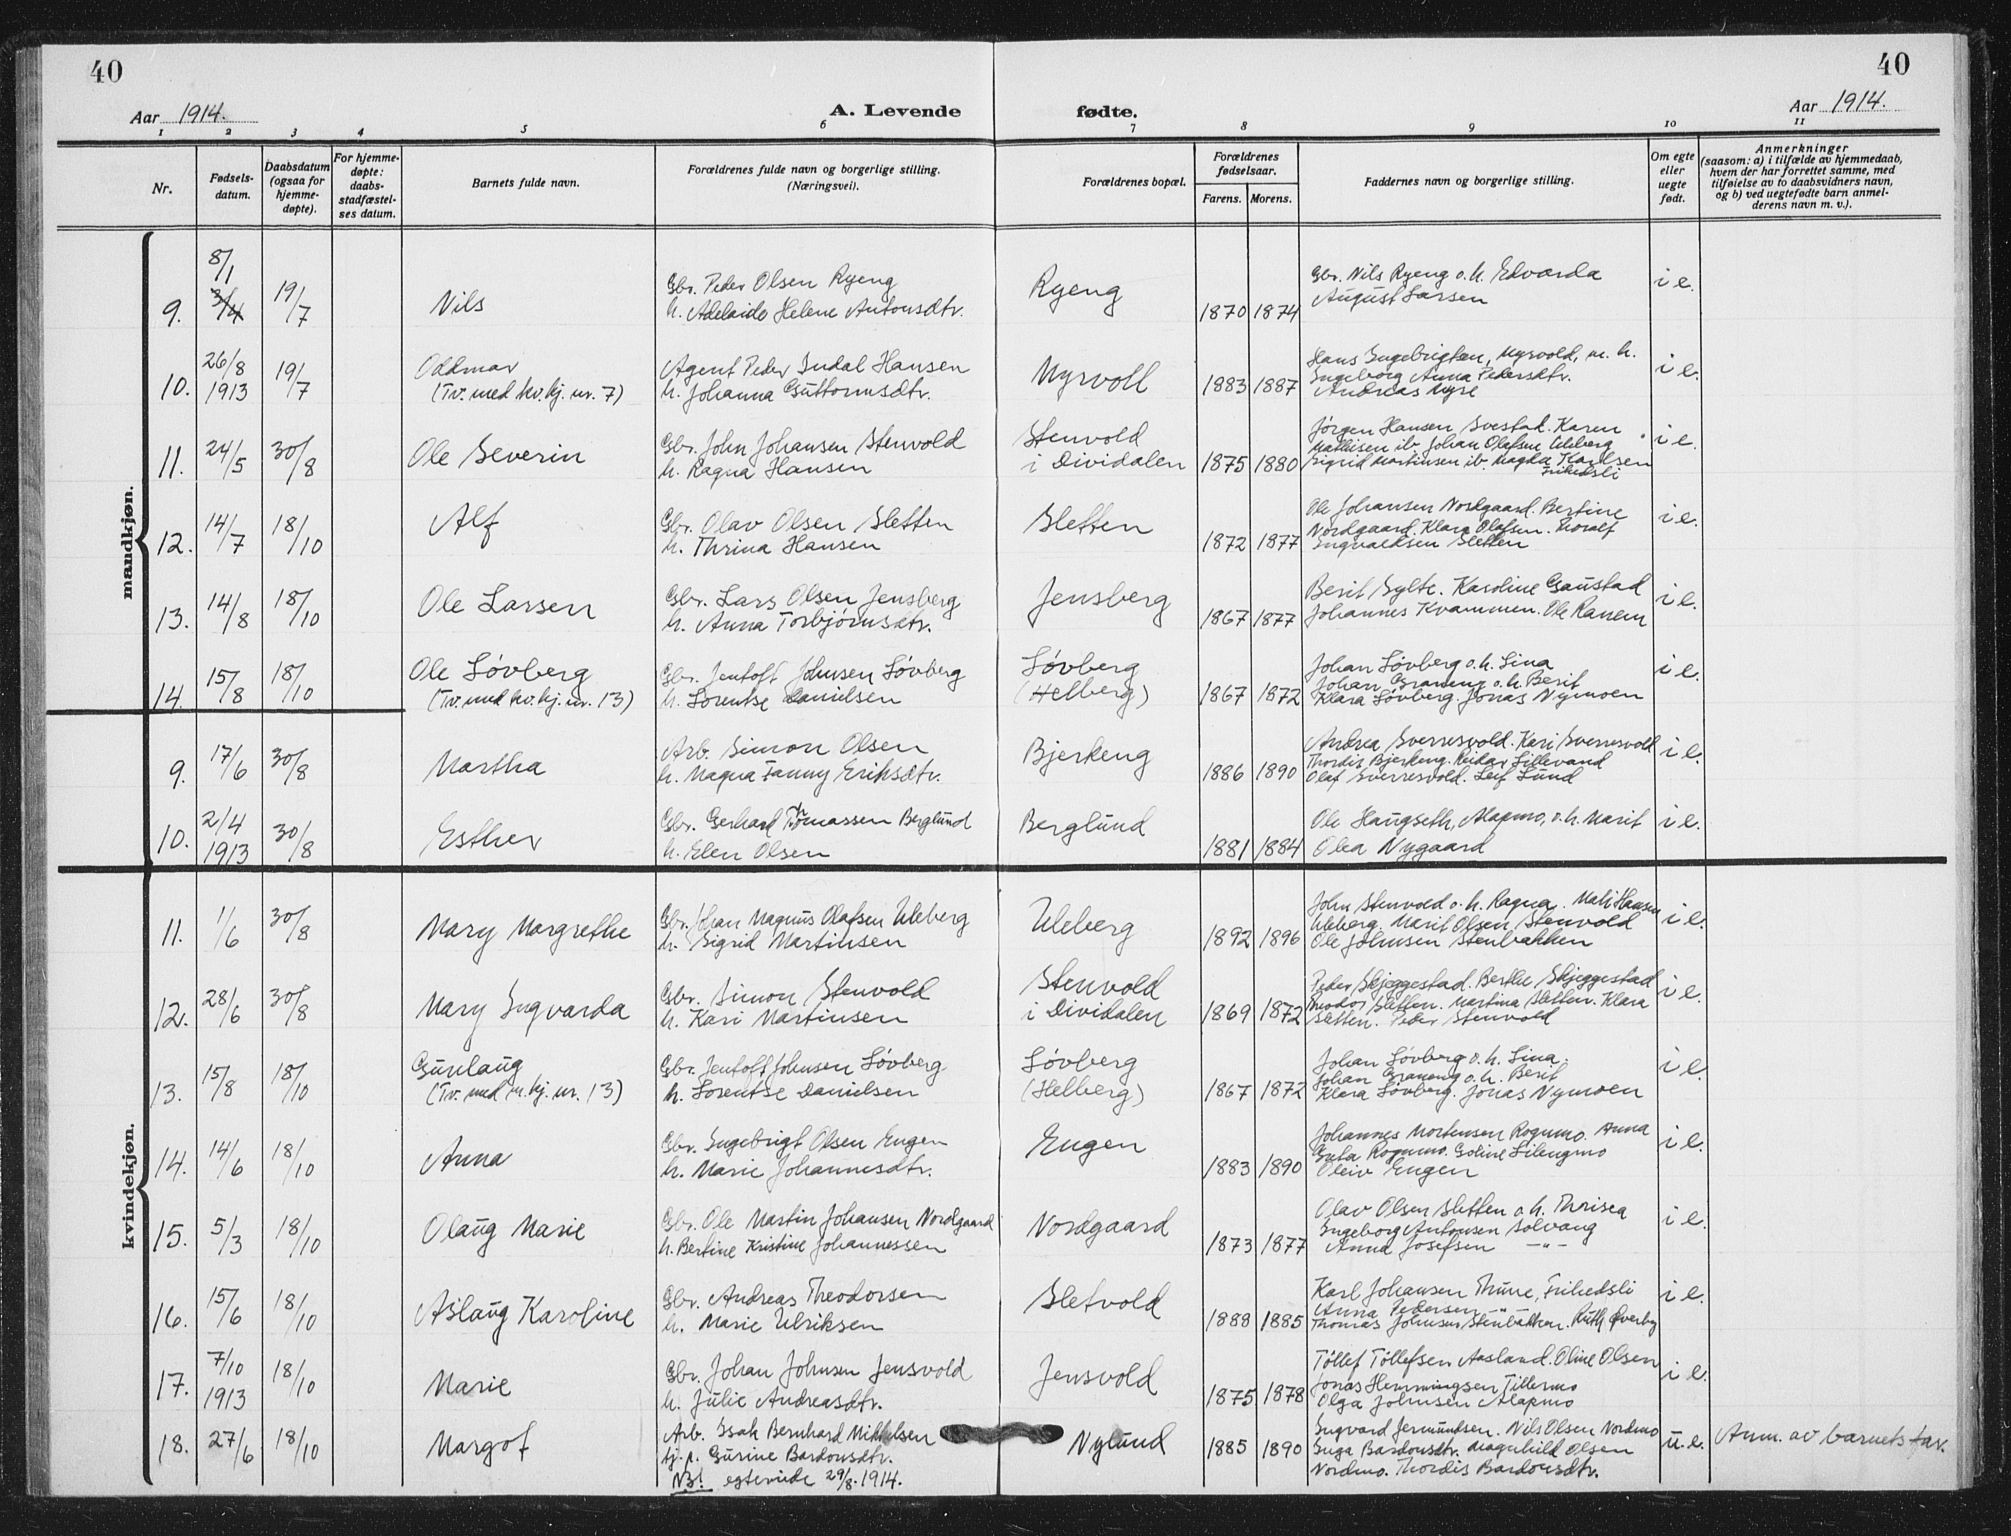 40
40
Aar 1914.
A. Levende
fødte.
Aar 1914.
1 2 3 4 5 6 7 8 9 10 11
Nr.
Fødsels-
datum.
Daabsdatum
(ogsaa for
hjemme-
døpte).
For hjemme-
døpte:
daabs-
stadfæstel-
ses datum.
Barnets fulde navn.
Forældrenes fulde navn og borgerlige stilling.
(Næringsvei).
Forældrenes bopæl.
Forældrenes
fødselsaar.
Farens. Morens.
Faddernes navn og borgerlige stilling.
Om egte
eller
uegte
født.
Anmerkninger
(saasom: a) i tilfælde av hjemmedaab,
hvem der har forrettet samme, med
tilføielse av to daabsvidners navn,
og b) ved uegtefødte barn anmel-
derens navn m. v.).
mandkjøn.
8/1
3/4
9. 19/7 Nils
Gbr. Peder Olsen Ryeng
h. Adelaide Helene Antonsdtr.
Ryeng
1870 1874
Gbr. Nils Ryeng o. h. Edvarda
August Larsen
i e.
10. 26/8 1913 19/7
Oddmar
(Tv. med kv. kj. nr. 7)
Agent Peder Indal Hansen
h. Johanna Guttormsdtr.
Myrvoll
1883 1887
Hans Ingebrigtsen, Myrvold, m. h.
Ingeborg Anna Pedersdtr.
Andreas Myre
i e.
11. 24/5 30/8 Ole Severin
Gbr. John Johansen Stenvold
h. Ragna Hansen
Stenvold
i Dividalen
1875 1880
Jørgen Hansen Svestad. Karen
Mathisen ib. Johan Olafsen Uleberg
Sigrid Martinsen ib. Magda Karlsen
Frihedsli
i e.
12. 14/7 18/10 Alf
Gbr. Olav Olsen Sletten
h. Thrina Hansen
Sletten
1872 1877
Ole Johansen Nordgaard. Bertine
Nordgaard. Klara Olafsen. Thoralf
Ingvaldsen Sletten
i e.
13. 14/8 18/10 Ole Larsen
Gbr. Lars Olsen Jensberg
h. Anna Torbjørnsdtr.
Jensberg
1867 1877
Berit Sylte. Karoline Gaustad
Johannes Kvammen. Ole Ranem
i e.
14. 15/8 18/10
Ole Løvberg
(Tv. med kv. kj. nr. 13)
Gbr. Jentoft Johnsen Løvberg
h. Lorentse Danielsen
Løvberg
(Helberg)
1867 1872
Johan Løvberg o. h. Lina
Johan Graneng o. h. Berit
Klara Løvberg. Jonas Nymoen
i e.
kvindekjøn.
9. 17/6 30/8 Martha
Arb. Simon Olsen
h. Magna Fanny Eriksdtr.
Bjerkeng
1886 1890
Andrea Sverresvold. Kari Sverresvold
Thordis Bjerkeng. Reidar Lillevand
Olaf Sverresvold. Leif Lund
i e.
10. 2/4 1913 30/8 Esther
Gbr. Gerhard Thomassen Berglund
h. Elen Olsen
Berglund
1881 1884
Ole Haugseth, Alapmo, o. h. Marit
Olea Nygaard
i e.
11. 1/6 30/8 Mary Margrethe
Gbr. Johan Magnus Olafsen Uleberg
h. Sigrid Martinsen
Uleberg
1892 1896
John Stenvold o. h. Ragna. Mali Hansen
Uleberg. Marit Olsen Stenvold
Ole Johnsen Stenbakken
i e.
12. 28/6 30/8 Mary Ingvarda
Gbr. Simon Stenvold
h. Kari Martinsen
Stenvold
i Dividalen
1869 1872
Peder Skjeggestad. Berthe Skjeggestad
Theodor Sletten. Martina Sletten. Klara
Sletten. Peder Stenvold
i e.
13. 15/8 18/10
Gunlaug
(Tv. med m. kj. nr. 13)
Gbr. Jentoft Johnsen Løvberg
h. Lorentse Danielsen
Løvberg
(Helberg)
1867 1872
Johan Løvberg o. h. Lina.
Johan Graneng o. h. Berit
Klara Løvberg. Jonas Nymoen
i e.
14. 14/6 18/10 Anna
Gbr. Ingebrigt Olsen Engen
h. Marie Johannesdtr.
Engen
1883 1890
Johannes Mortensen Rognmo. Anna
Rognmo.
Oleiv Engen
i e.
15. 5/3 18/10 Olaug Marie
Gbr. Ole Martin Johansen Nordgaard
h. Bertine Kristine Johannessen
Nordgaard
1873 1877
Olav Olsen Sletten o. h. Thrina
Ingeborg Antonsen Solvang
Anna Josefsen —"—
i e.
16. 15/6 18/10 Aslaug Karoline
Gbr. Andreas Theodorsen
h. Marie Ulriksen
Sletvold
1888 1885
Karl Johansen Thune, Frihedsli
Anna Pedersen —"—
Thomas Johnsen Stenbakken. Ruth Øverby
i e.
17. 7/10 1913 18/10 Marie
Gbr. Johan Johnsen Jensvold
h. Julie Andreasdtr.
Jensvold
1875 1878
Tøllef Tøllefsen Aasland. Oline Olsen
Jonas Hemmingsen Tillermo
Olga Johnsen Alapmo
i e.
18. 27/6 18/10 Margot
Arb. Isak Bernhard Mikkelsen
tj. p. Gurine Bardonsdtr.
NB! egteviede 29/8. 1914.
Nylund
1885 1890
Ingvard Jermundsen. Nils Olsen Nordmo
Inga Bardonsdtr. Magnhild Olsen
Nordmo. Thordis Bardonsdtr.
u. e.
Anm. av barnets far.